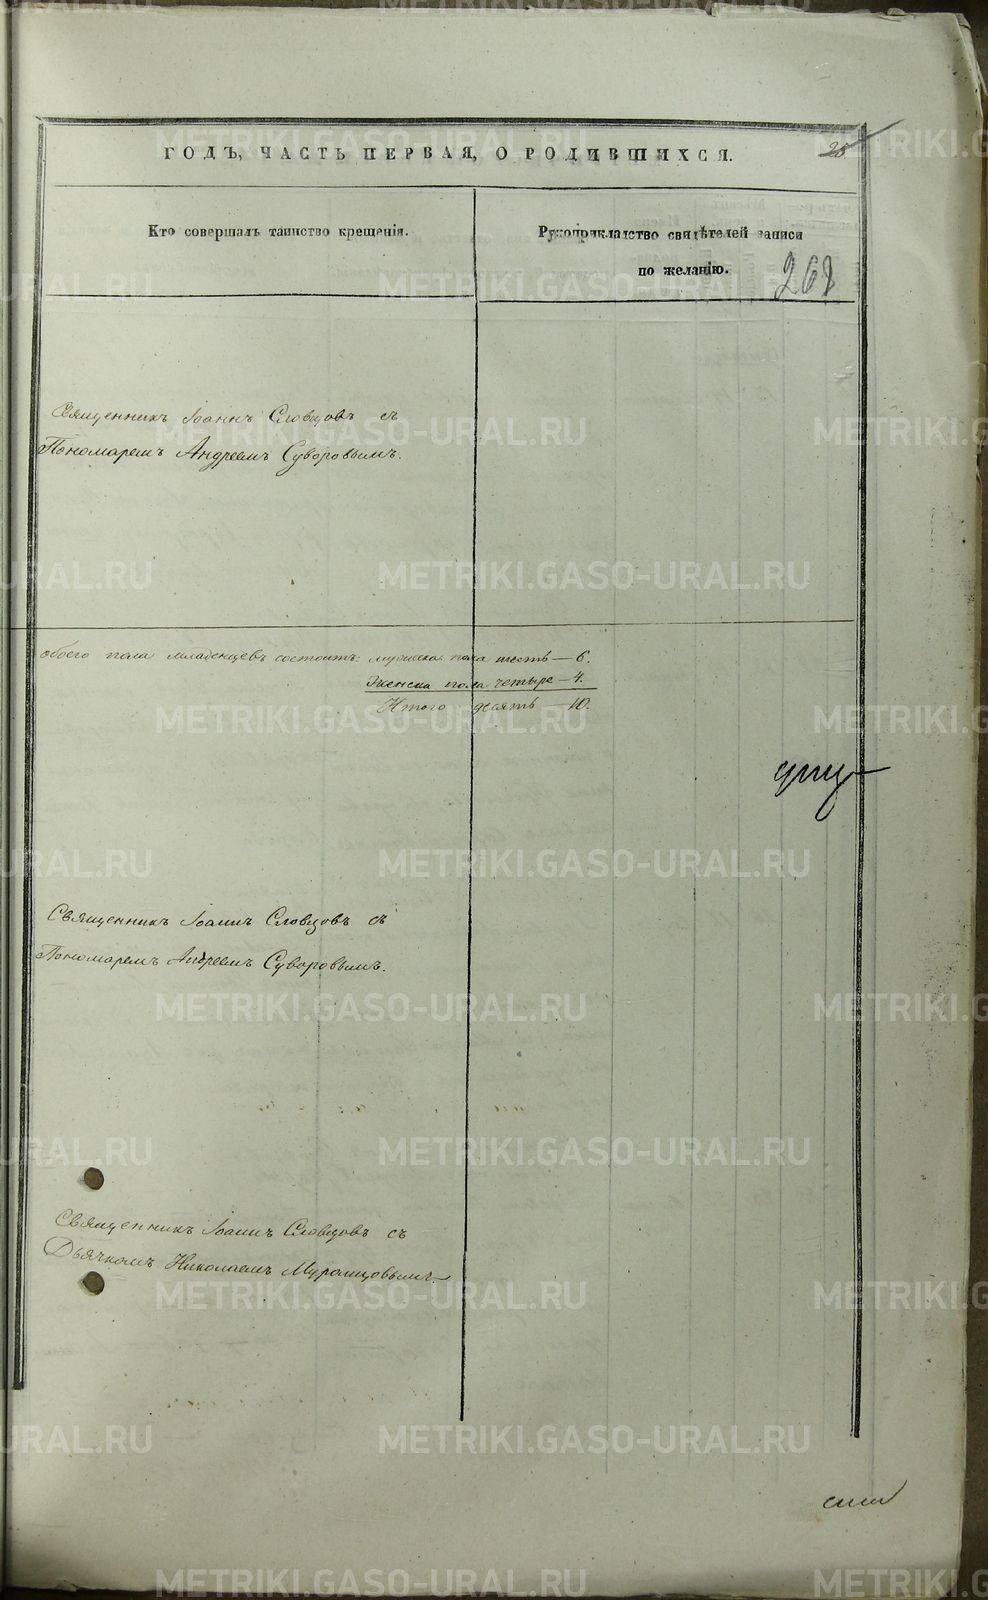 ГОДЪ, ЧАСТЬ ПЕРВАЯ, О РОДИВШИХСЯ.
25
Кто совершалъ таинство крещенія.
Рукоприкладство свидѣтелей записи
по желанію.
268
Священникъ Іоаннъ Словцовъ съ
Пономаремъ Андреемъ Суворовымъ.
обоего пола младенцевъ состоитъ: мужеска пола шесть — 6.
Женска пола четыре — 4.
Итого десять — 10.
Священникъ Іоаннъ Словцовъ съ
Пономаремъ Андреемъ Суворовымъ.
Священникъ Іоаннъ Словцовъ съ
Дьячкомъ Николаемъ Муромцовымъ.
METRIKI.GASO-URAL.RU